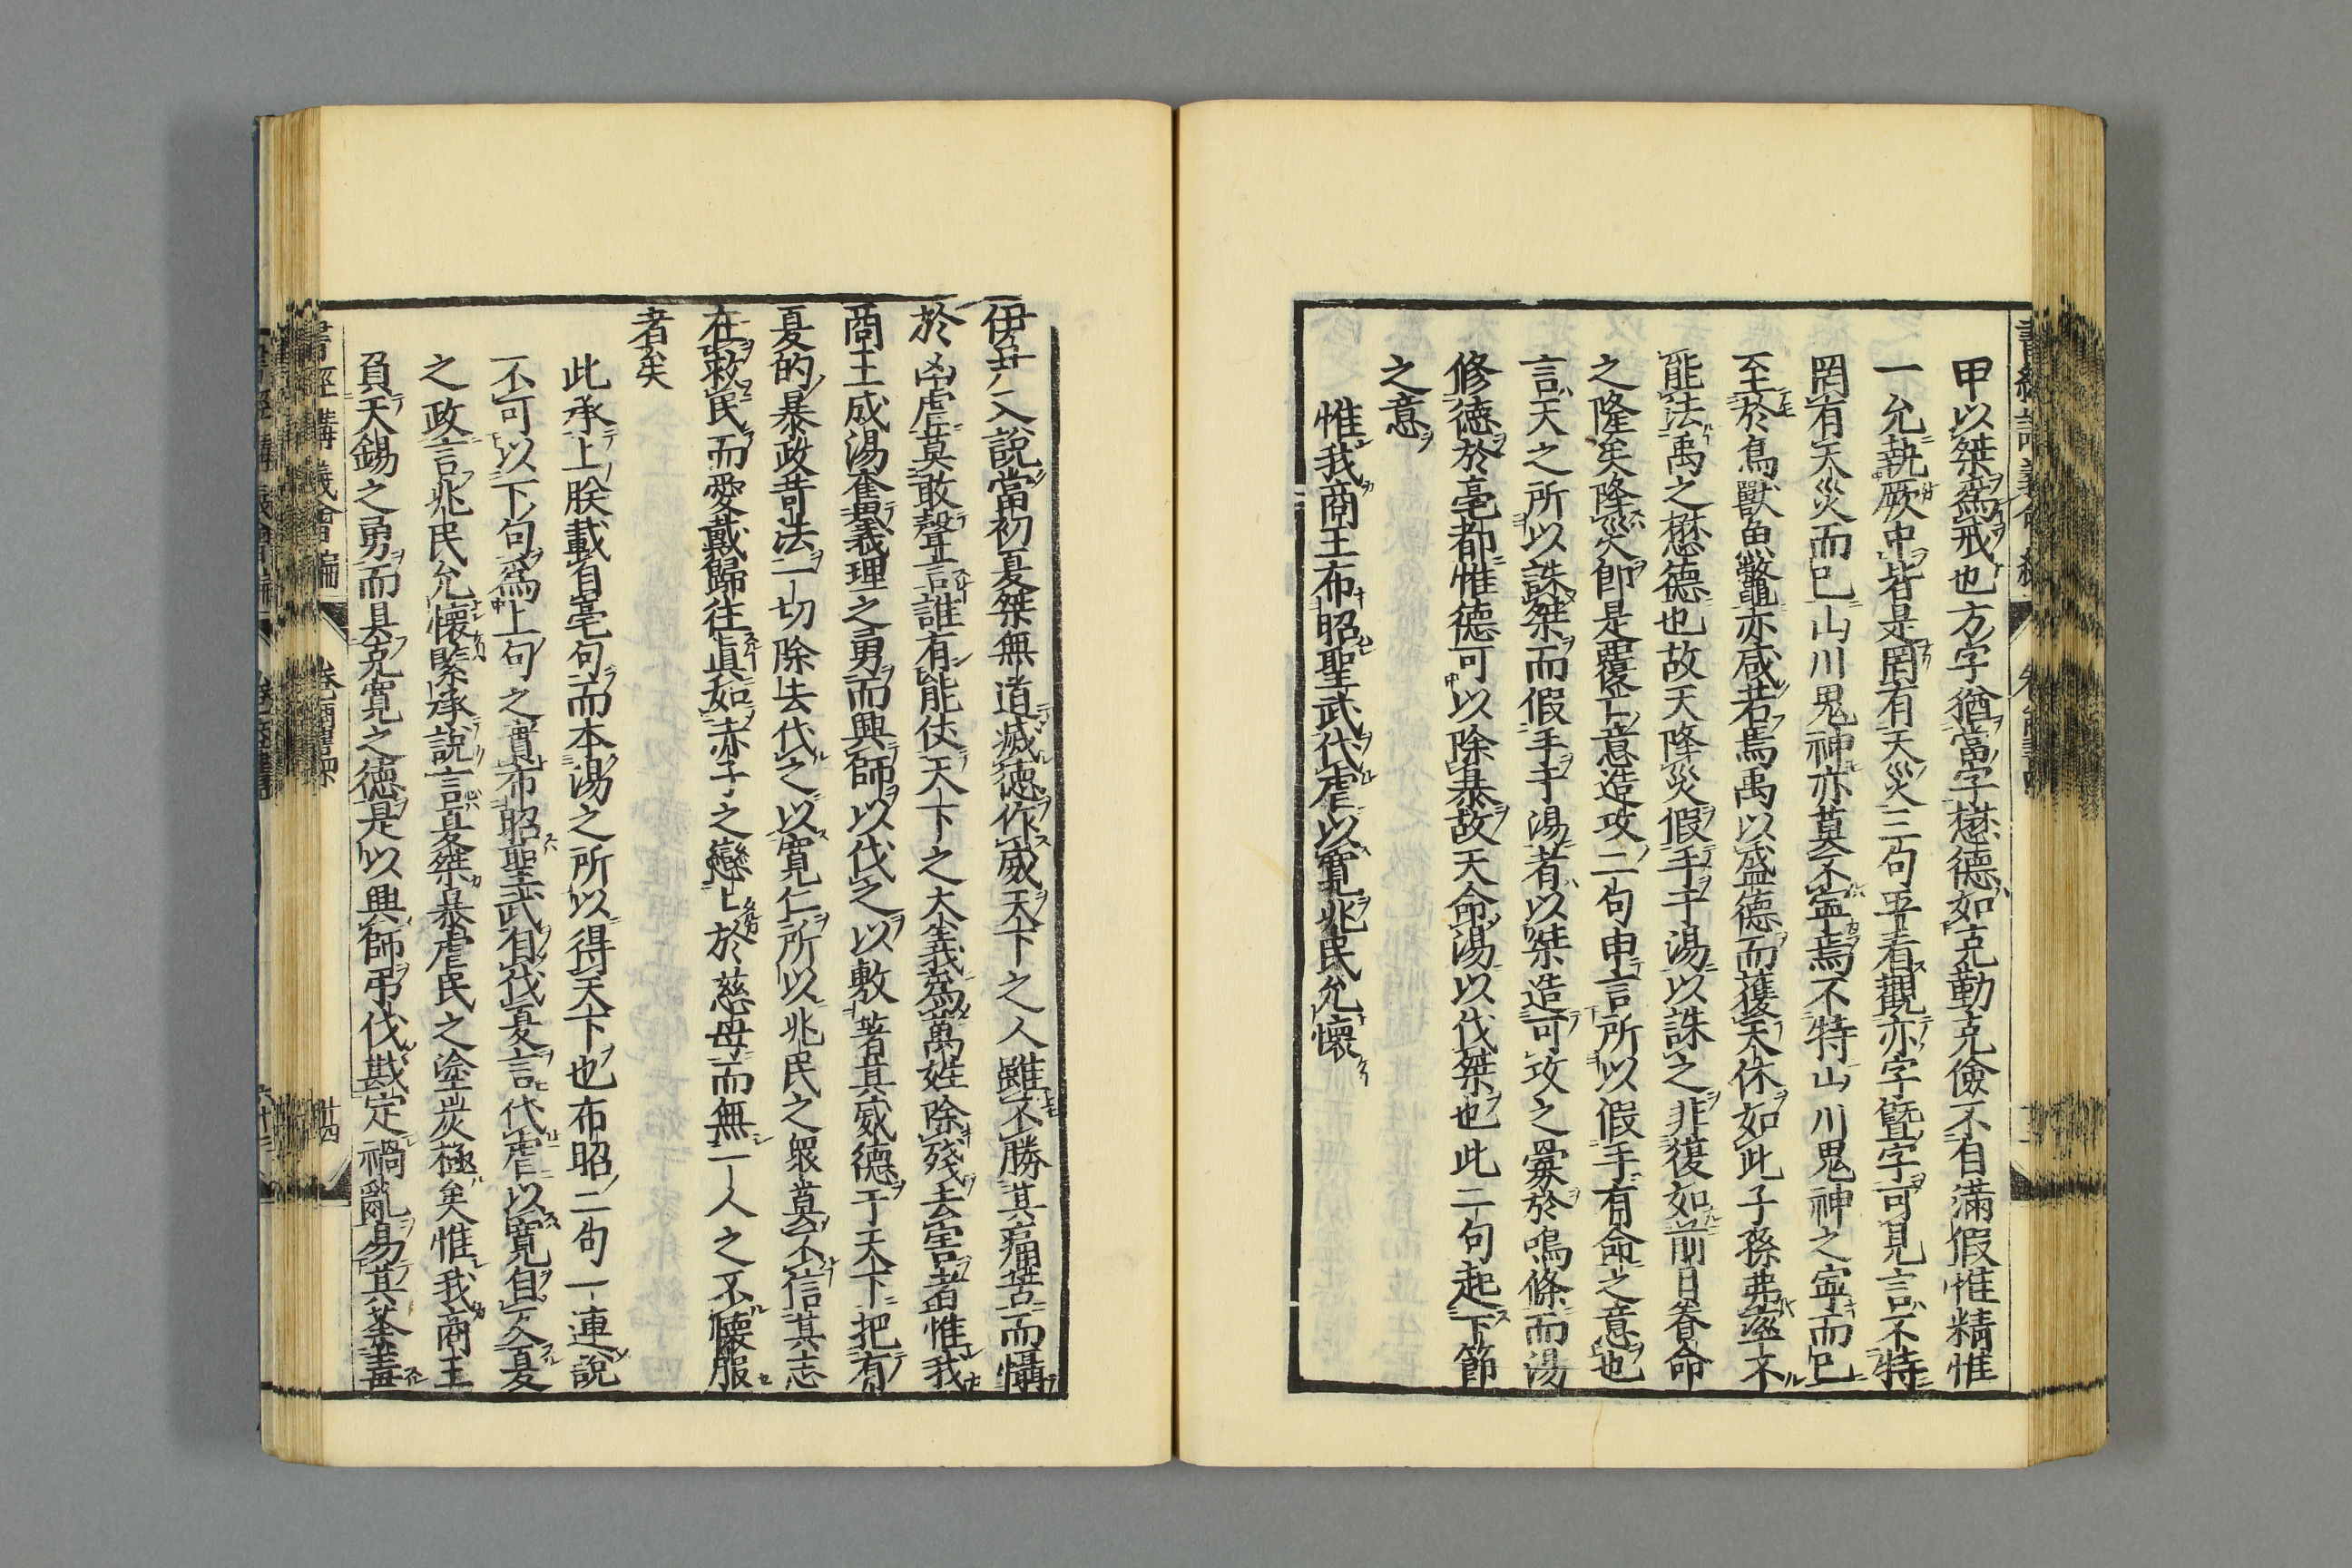 甲以桀爲戒也方字猶當字懋德如克勤克儉不自滿假惟精惟
一允執厥中皆是罔有天災三句平看觀亦字曁字可見言不特
罔有天災而已山川鬼神亦莫不寧焉不特山川鬼神之寧而已
至於鳥獸魚鱉亦咸若焉禹以盛德而獲天休如此子孫弗率不
能法禹之懋德也故天降災假手于湯以誅之非復如前日眷命
之隆矣降災即是覆亡意造攻二句申言所以假手有命之意也
言天之所以誅桀而假手于湯者以桀造可攻之釁於鳴條而湯
修德於亳都惟德可以除暴故天命湯以伐桀也此二句起下節
之意
惟我商王布昭聖武代虐以寬兆民允懷
伊尹又說當初夏桀無道滅德作威天下之人雖不勝其痛苦而懾
於凶虐莫敢聲言誰有能仗天下之大義爲萬姓除殘去害者惟我
商王成湯奮義理之勇而興師以伐之以敷著其威德于天下把有
夏的暴政苛法一切除去代之以寬仁所以兆民之衆莫不信其志
在救民而愛戴歸往眞如赤子之戀上於慈母而無一人之不懷服
者矣
此承上朕載自亳句而本湯之所以得天下也布昭二句一連說
不可以下句爲上句之實布昭聖武自伐夏言代虐以寬自反夏
之政言兆民允懷緊承說言夏桀暴虐民之塗炭極矣惟我商王
負天錫之勇而具克寬之德是以興師弔伐戡定禍亂易其荼毒
書經講義會編
卷
廿四